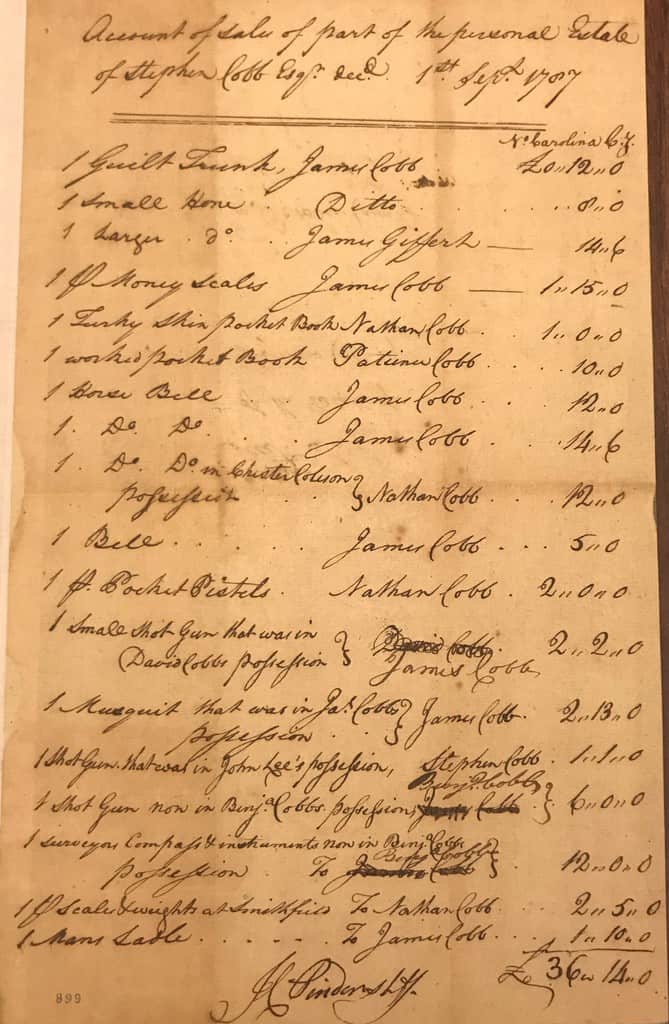 Account of sales of part of the personal Estate
of Stephen Cobb Esqr. decd. 1st Septr. 1787
No. Carolina Cy.
1 Guilt Trunk, James Cobb £0,,12,,0
1 Small Hone Ditto . . . 8,,0
1 Larger . do . . James Giffert — 14,,6
1 p Money Scales James Cobb — 1,,15,,0
1 Turky Skin pocket Book Nathan Cobb . 1,,0,,0
1 worked pocket Book Patience Cobb . . . . 10,,0
1 Horse Bell . . James Cobb . . . 12,,0
1. Do. Do. . . . James Cobb . . . 14,,6
1. Do. Do. in Chester
possession . . } Nathan Cobb . . . 12,,0
1 Bell . . . . . James Cobb . . . 5,,0
1 p. Pocket Pistels . Nathan Cobb . 2,,0,,0
1 Small Shot Gun that was in
David Cobbs possession } David Cobb 2,,2,,0
James Cobb
1 Musquit that was in Jas. Cobbs } James Cobb . 2,,13,,0
possession . .
1 Shot Gun that was in John Lee's possession, Stephen Cobb . 1,,1,,0
Benja. Cobb
1 Shot Gun now in Benja. Cobbs possession, Cobb . } 6,,0,,0
1 Surveyors Compass & instruments now in Benja. Cobbs
Benja. Cobb
possession . To Cobb } 12,,0,,0
1 p Scales & weights at Smithfield To Nathan Cobb . . 2,,5,,0
1 Mans Sadle . . . . . To James Cobb . . 1,,10,,0
£ 36,,14,,0
899